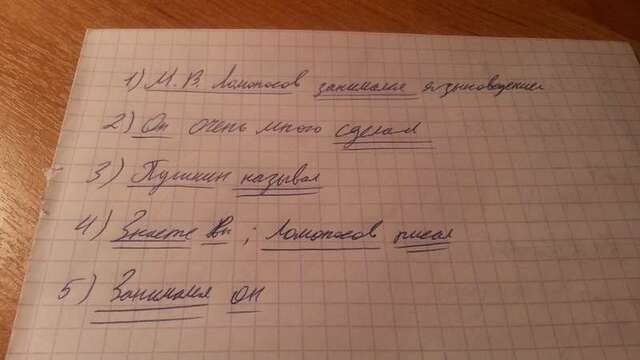 1) М. В. Ломоносов занимался языковедением
2) Он очень много сделал
3) Пушкин называл
4) Знаете Вы; Ломоносов писал
5) Занимался он